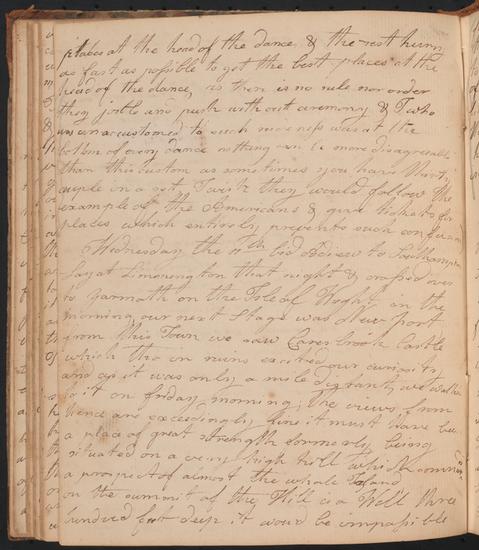 places at the head of the dance, & the rest hurry
as fast as possible to get the best places at the
head of the dance, as there is no rule nor order
they jostle and push without ceremony & I who
was unaccustomed to such rudeness was at the
bottom of every dance nothing can be more disagreeable
than this custom as sometimes you have thirty
couple in a set, I wish they would follow the
example of the Americans & give tickets for
places which entirely prevents such confusion
Wednesday the 11th bid adieu to Southampton
lay at Limington that night & crossed over
to Yarmoth on the Isle of Wight in the
morning our next Stage was New port
from this Town we saw Caresbrook Castle
which tho in ruins excited our curiosity
and as it was only a mile distant, we walked
to it on friday morning; the views from
thence are exceedingly fine it must have been
a place of great strength formerly being
situated on a very high hill which commands
a prospect of almost the whole Island
on the summit of the Hill is a Well three
hundred feet deep it would be impossible